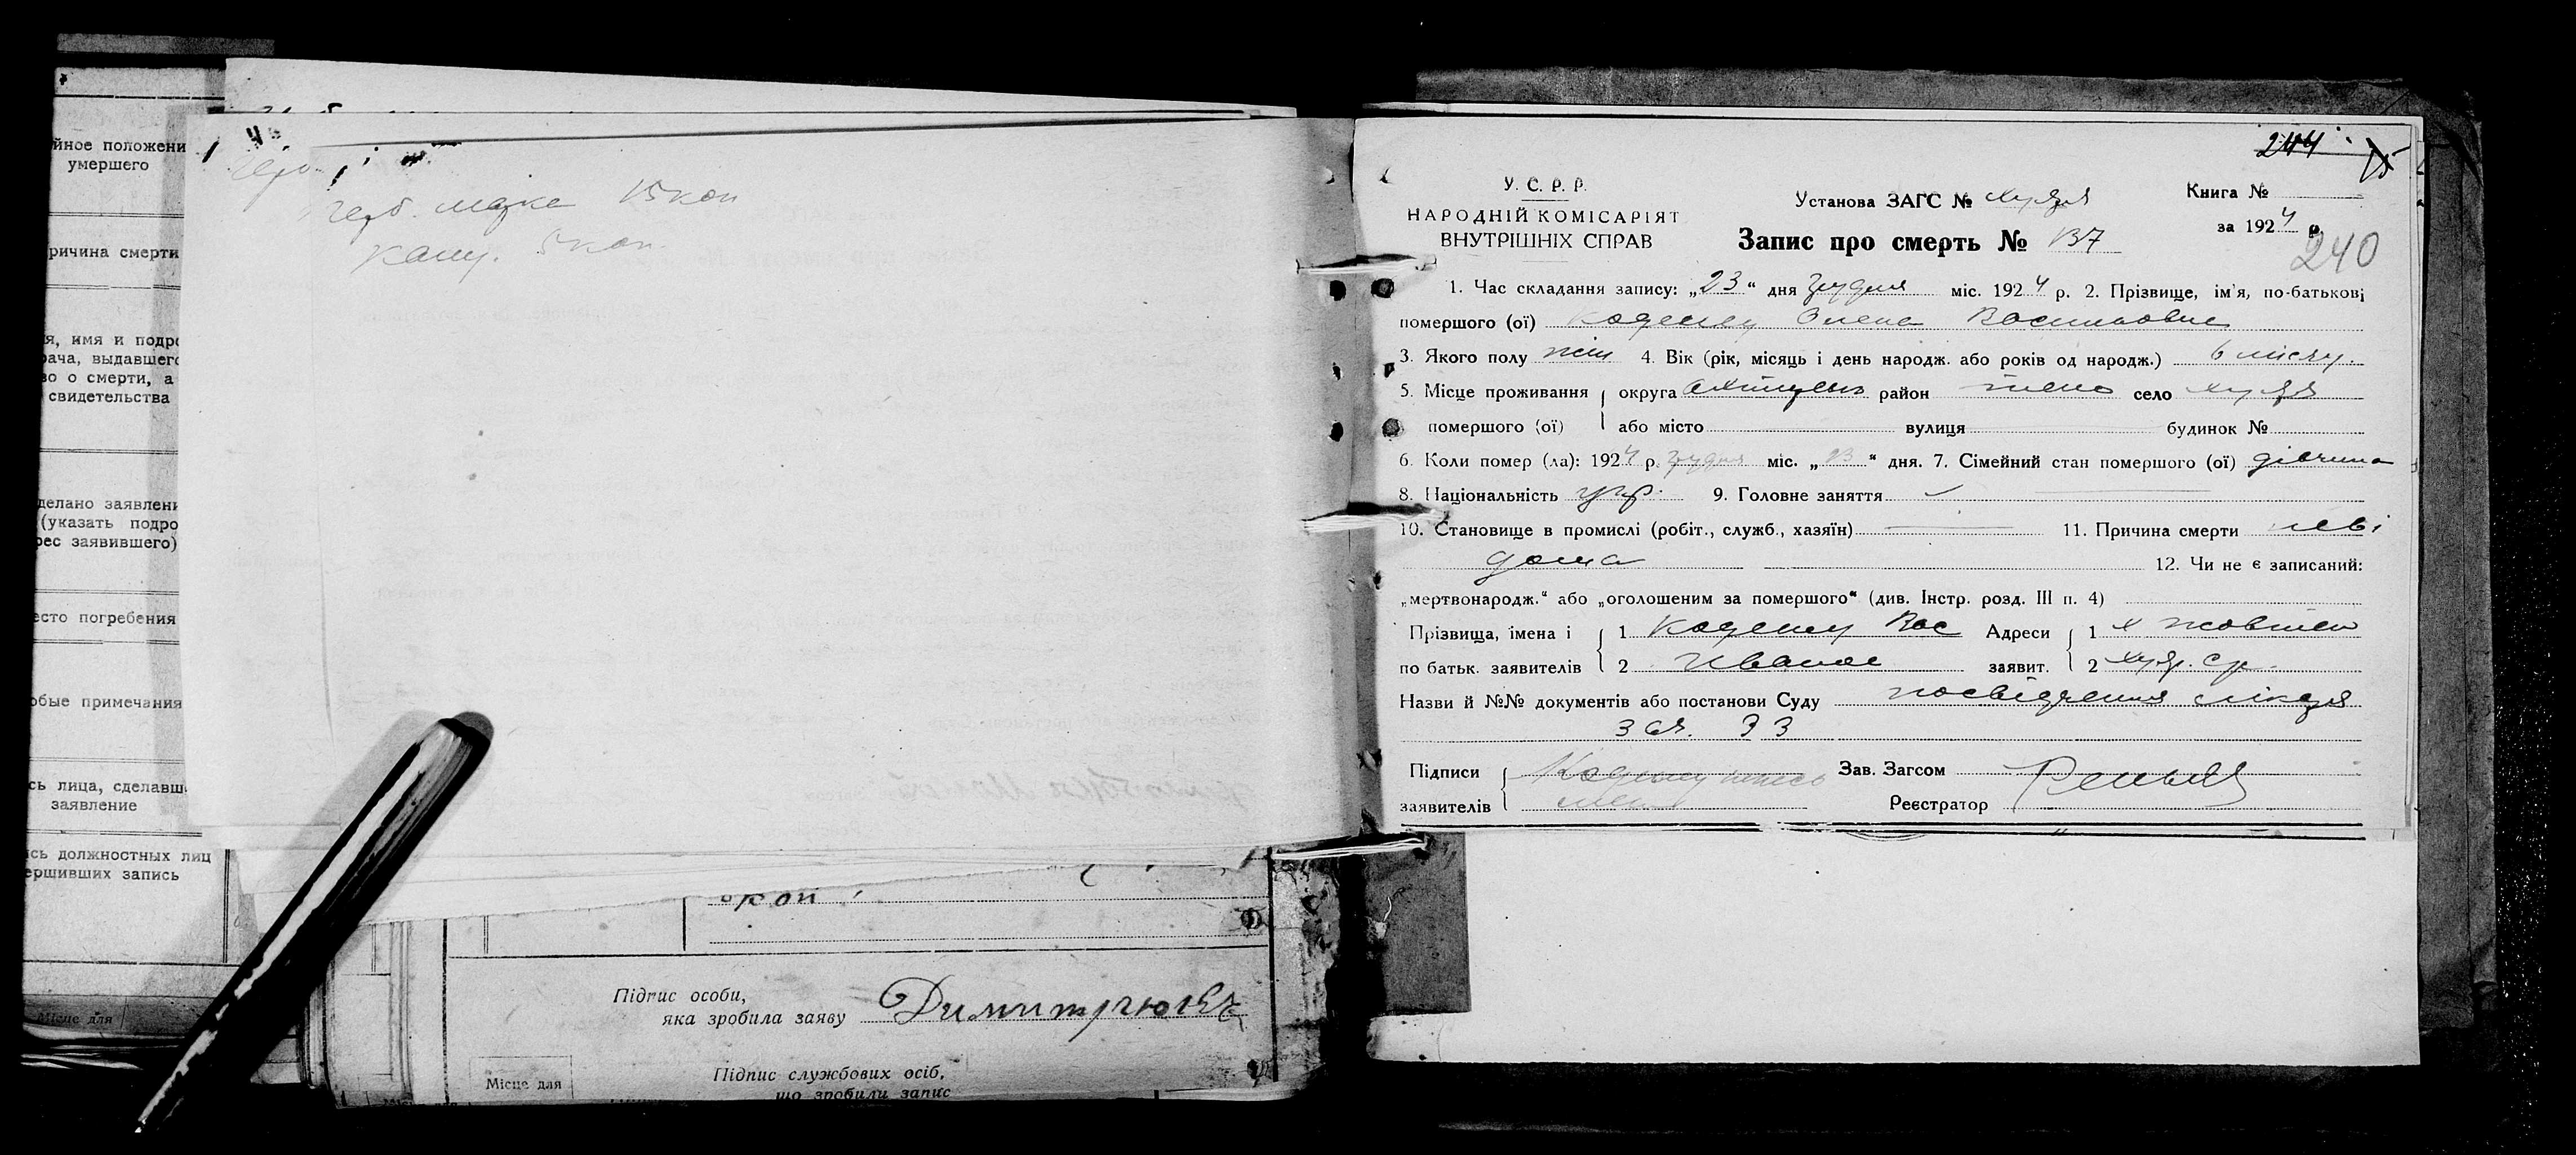 йное положени
умершего
ричина смерти
я, имя и подро
рача, выдавшего
во о смерти, а
свидетельства
делано заявлени
(указать подро
рес заявившего)
есто погребения
обые примечания
сь лица, сделавш
заявление
сь должностных лиц
ершивших запись
Місце для
герб. марка 15 коп
канц. 5 коп.
коп
Підпис особи,
яка зробила заяву Димитрюк
Підпис службових осіб,
що зробили запис
Місце для
244
240
У. С. Р. Р.
НАРОДНІЙ КОМІСАРІЯТ
ВНУТРІШНІХ СПРАВ
Установа ЗАГС №
Книга №
за 1924 р.
Запис про смерть № 137
1. Час складання запису: „23“ дня грудня міс. 1924 р. 2. Прізвище, ім'я, по-батькові
помершого (ої) Олена Васильовна
3. Якого полу жін 4. Вік (рік, місяць і день народж. або років од народж.) 6 місяц.
5. Місце проживання округа район село
помершого (ої) або місто вулиця будинок №
6. Коли помер (ла): 1924 р. грудня міс. „23“ дня. 7. Сімейний стан помершого (ої) дівчина
8. Національність укр. 9. Головне заняття
10. Становище в промислі (робіт., служб., хазяїн) 11. Причина смерти неві
дома 12. Чи не є записаний:
„мертвонародж.“ або „оголошеним за помершого“ (див. Інстр. розд. III п. 4)
Прізвища, імена і 1 Вас Адреси 1 х Жовтнев
по батьк. заявителів 2 Иванов заявит. 2
Назви й №№ документів або постанови Суду посвідчення лікаря
за № 33
Підписи Зав. Загсом
заявителів Реєстратор